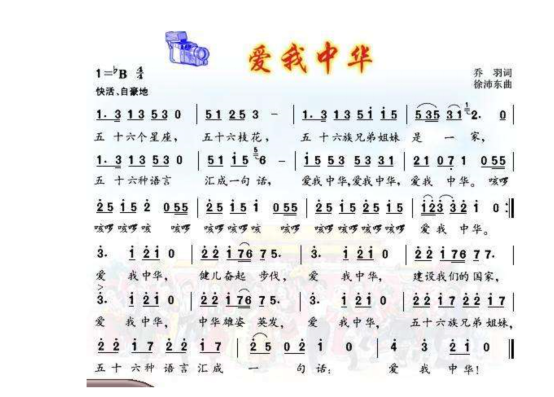 爱我中华
1=♭B
乔 羽词
徐沛东曲
快活、自豪地
1. 3 1 3 5 3 0 | 5 1 2 5 3 - | 1. 3 1 3 5 i i 5 | 5 3 5 3 1 2. 0 |
五 十六个星座， 五十六枝花， 五 十六族兄弟姐妹 是 一 家，
1. 3 1 3 5 3 0 | 5 1 i 5 6 - | i 5 5 3 5 3 3 1 | 2 1 0 7 1 0 5 5 |
五 十六种语言 汇成一句 话， 爱我中华，爱我中华， 爱我 中华。 咳啰
2 5 i 5 2 0 5 5 | 2 5 i 5 2 0 5 5 | 2 5 i 5 2 5 i 5 | i 2 3 3 2 i 0 :‖
咳啰 咳啰 咳 咳啰 咳啰 咳啰 咳 咳啰 咳啰 咳啰 咳啰 咳啰 爱 我 中 华。
3. i 2 i 0 | 2 2 i 7 6 7 5. | 3. i 2 i 0 | 2 2 i 7 6 7 7. |
爱 我 中华， 健儿奋起 步伐， 爱 我 中华， 建设我们的 国家，
3. i 2 i 0 | 2 2 i 7 6 7 5. | 3. i 2 i 0 | 2 i 7 2 2 i 7 |
爱 我 中华， 中华雄姿 英发， 爱 我 中华， 五十六族兄弟 姐妹，
2 2 i 7 2 2 i 7 | 2 5 0 2 i 0 | 3 4 2 i 0 ‖
五 十 六种 语言 汇成 一 句 话： 爱 我 中华！